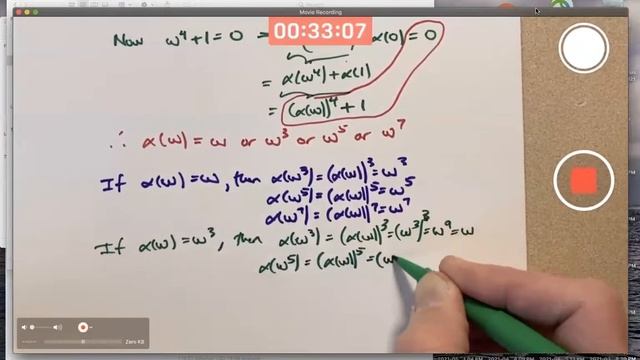 Movie Recording
00:33:07
Now ω⁴+1=0 α(0)=0
= α(ω⁴)+α(1)
= (α(ω))⁴+1
∴ α(ω) = ω or ω³ or ω⁵ or ω⁷
If α(ω)=ω, then α(ω³)=(α(ω))³=ω³
α(ω⁵)=(α(ω))⁵=ω⁵
α(ω⁷)=(α(ω))⁷=ω⁷
If α(ω)=ω³, then α(ω³)=(α(ω))³=(ω³)³=ω⁹=ω
α(ω⁵)=(α(ω))⁵=(ω
Zero KB